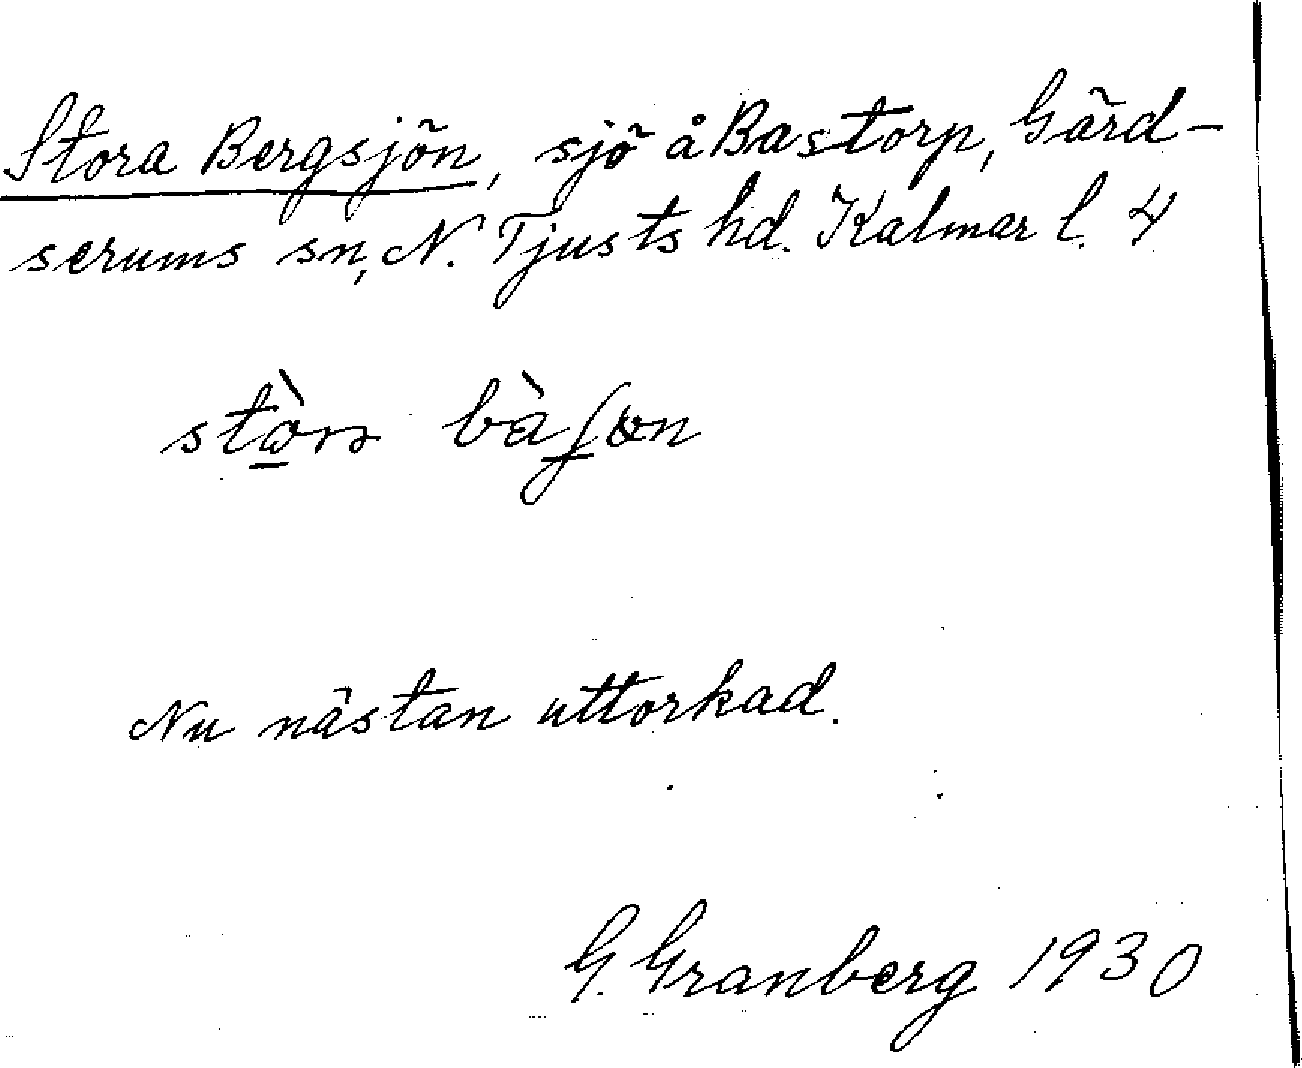 Stora Bergsjön, sjö å Bastorp, Gärd-
serums sn, N. Tjusts hd. Kalmar l. 4
Nu nästan uttorkad.
G. Granberg 1930